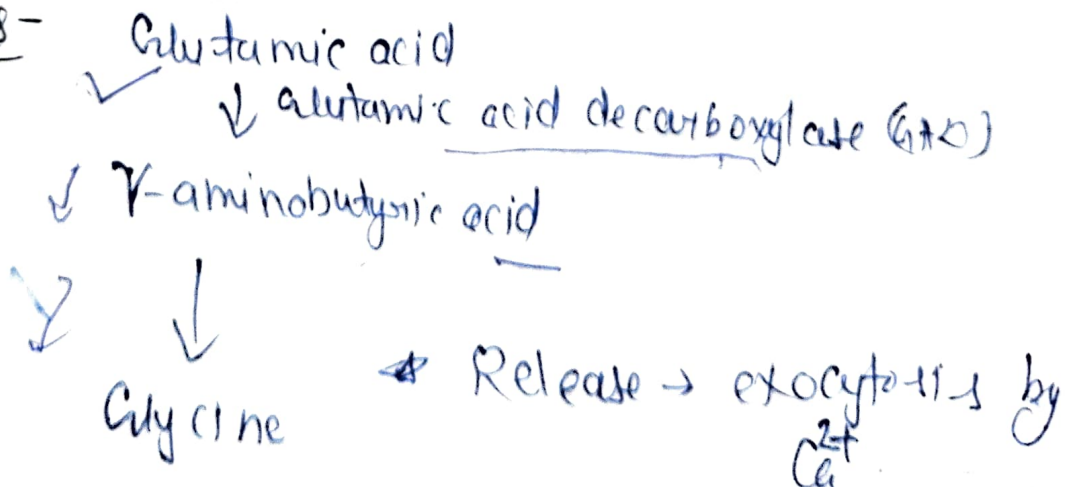 Glutamic acid
↓ Glutamic acid decarboxylase (GAD)
γ-aminobutyric acid
↓
Glycine
* Release → exocytosis by
Ca2+